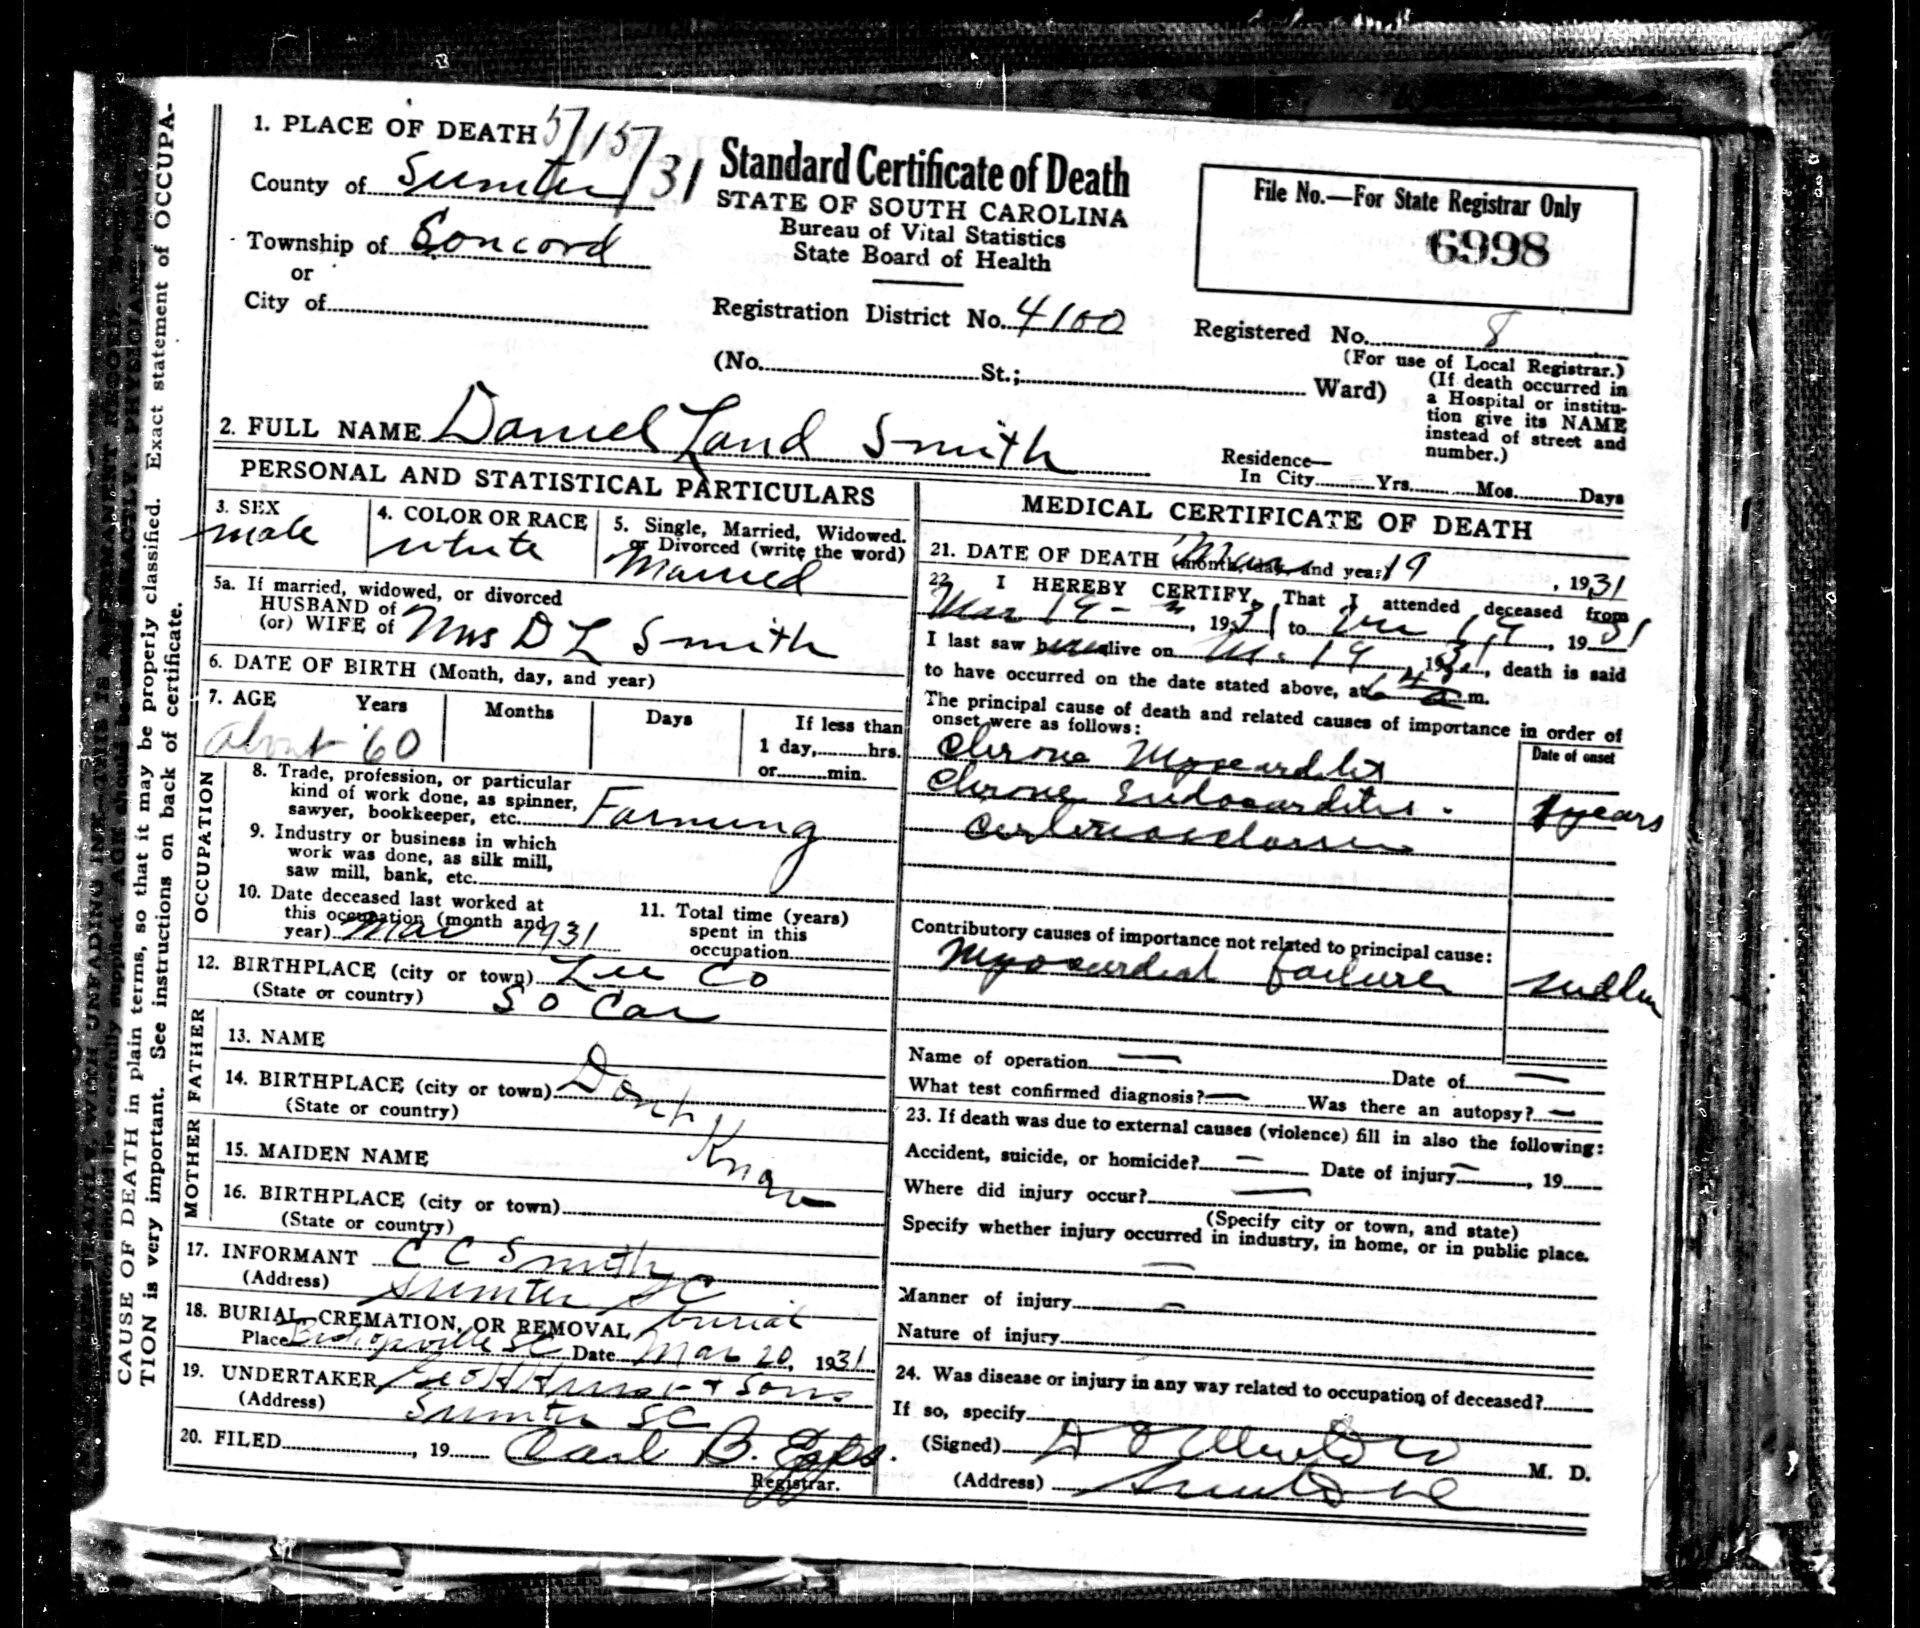 1. PLACE OF DEATH 5/15/31
County of Sumter
Township of Concord
or
City of
Standard Certificate of Death
STATE OF SOUTH CAROLINA
Bureau of Vital Statistics
State Board of Health
File No.—For State Registrar Only
6998
Registration District No. 4100
Registered No. 8
(For use of Local Registrar.)
(No. St.; Ward)
(If death occurred in
a Hospital or institu-
tion give its NAME
instead of street and
number.)
2. FULL NAME Daniel Land Smith
Residence—
In City Yrs. Mos. Days
PERSONAL AND STATISTICAL PARTICULARS
3. SEX
male
4. COLOR OR RACE
white
5. Single, Married, Widowed.
or Divorced (write the word)
Married
5a. If married, widowed, or divorced
HUSBAND of
(or) WIFE of Mrs D L Smith
6. DATE OF BIRTH (Month, day, and year)
7. AGE Years Months Days If less than
1 day, hrs.
or min.
about 60
OCCUPATION
8. Trade, profession, or particular
kind of work done, as spinner,
sawyer, bookkeeper, etc. Farming
9. Industry or business in which
work was done, as silk mill,
saw mill, bank, etc.
10. Date deceased last worked at
this occupation (month and
year) Mar 1931
11. Total time (years)
spent in this
occupation
12. BIRTHPLACE (city or town) Lee Co
(State or country) So Car
FATHER
13. NAME
14. BIRTHPLACE (city or town)
(State or country)
Dont Know
MOTHER
15. MAIDEN NAME
16. BIRTHPLACE (city or town)
(State or country)
17. INFORMANT C C Smith
(Address) Sumter SC
18. BURIAL, CREMATION, OR REMOVAL burial
Place Bishopville SC Date Mar 20, 1931
19. UNDERTAKER Geo H Hurst & Sons
(Address) Sumter SC
20. FILED , 19 Carl B. Epps.
Registrar.
MEDICAL CERTIFICATE OF DEATH
21. DATE OF DEATH (month, day, and year) Mar 19, 1931
22. I HEREBY CERTIFY, That I attended deceased from
Mar 19, 1931 to Mar 19, 1931
I last saw him alive on 19, 1931, death is said
to have occurred on the date stated above, at m.
The principal cause of death and related causes of importance in order of
onset were as follows:
Date of onset
Chronic Myocarditis
Chronic Endocarditis. years
arteriosclerosis
Contributory causes of importance not related to principal cause:
Myocardial failure sudden
Name of operation — Date of —
What test confirmed diagnosis? — Was there an autopsy? —
23. If death was due to external causes (violence) fill in also the following:
Accident, suicide, or homicide? — Date of injury — , 19
Where did injury occur? —
(Specify city or town, and state)
Specify whether injury occurred in industry, in home, or in public place.
—
Manner of injury —
Nature of injury
24. Was disease or injury in any way related to occupation of deceased?
If so, specify
(Signed) M. D.
(Address)
CAUSE OF DEATH in plain terms, so that it may be properly classified. Exact statement of OCCUPA-
TION is very important. See instructions on back of certificate.